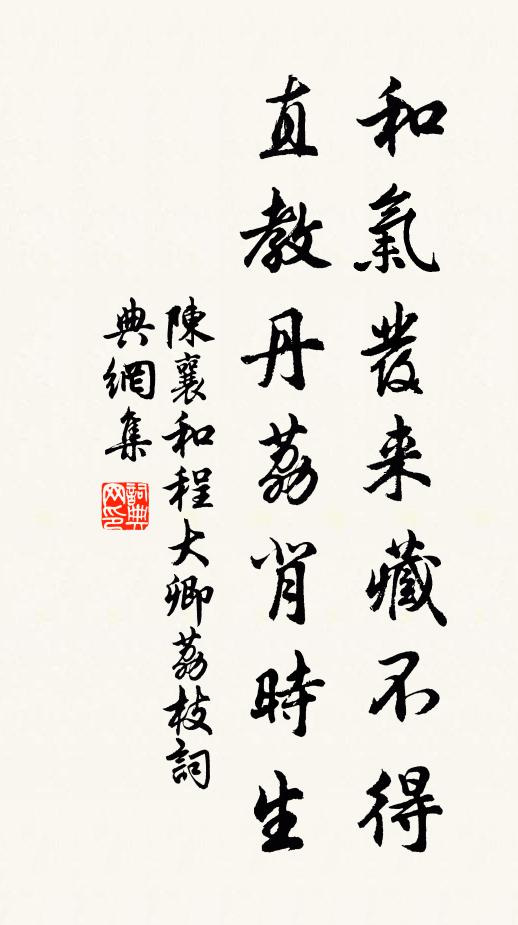 和氣發来藏不得
直教丹荔背時生
陳襄和程大卿荔枝詞
典網集
詞典
网印